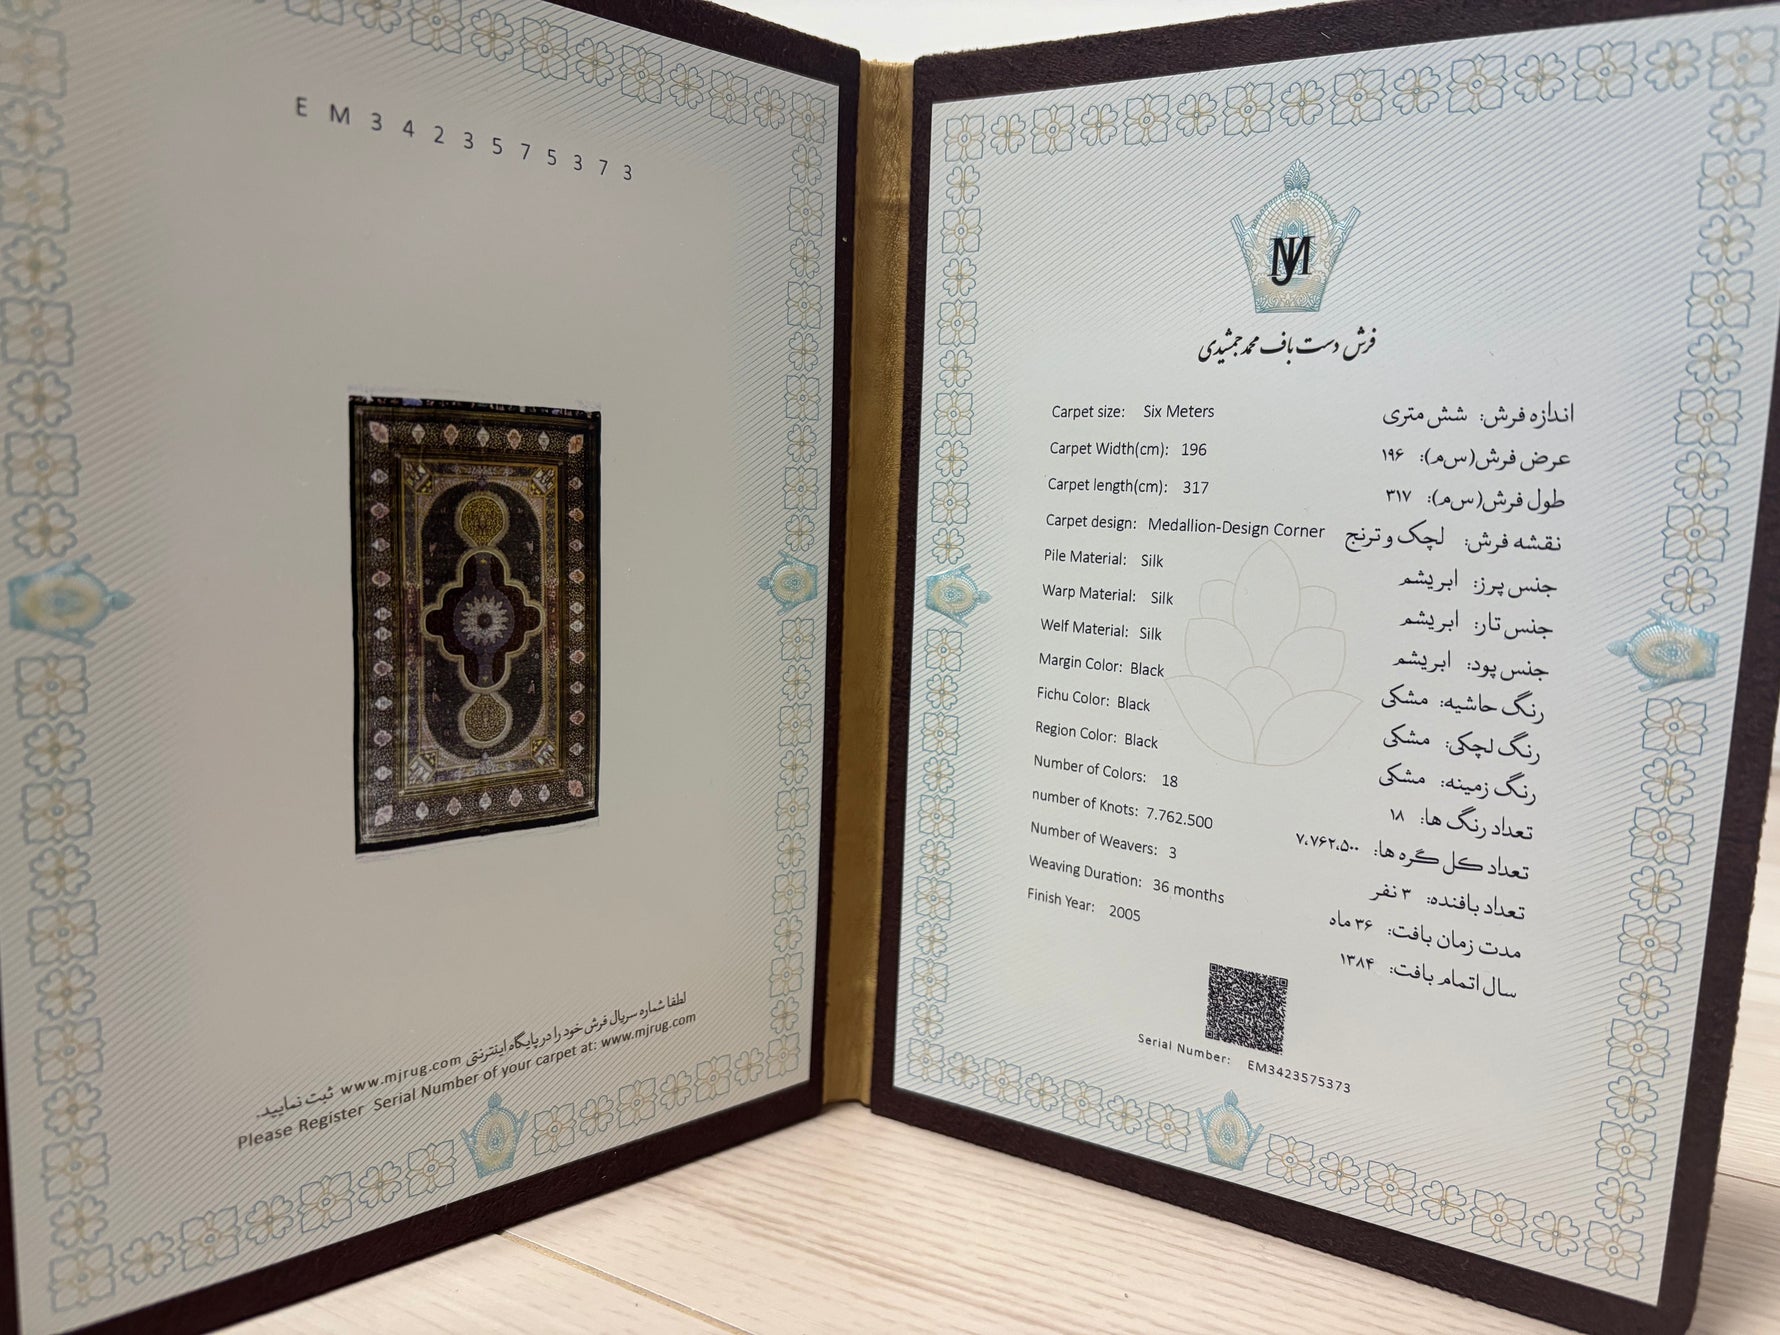 EM3423575373
لطفا شماره سریال فرش خود را در پایگاه اینترنتی www.mjrug.com ثبت نمایید.
Please Register Serial Number of your carpet at: www.mjrug.com
MJ
فرش دست باف محمد جمشیدی
Carpet size: Six Meters
Carpet Width(cm): 196
Carpet length(cm): 317
Carpet design: Medallion-Design Corner
Pile Material: Silk
Warp Material: Silk
Welf Material: Silk
Margin Color: Black
Fichu Color: Black
Region Color: Black
Number of Colors: 18
number of Knots: 7.762.500
Number of Weavers: 3
Weaving Duration: 36 months
Finish Year: 2005
اندازه فرش: شش متری
عرض فرش(س‌م): ۱۹۶
طول فرش(س‌م): ۳۱۷
نقشه فرش: لچک و ترنج
جنس پرز: ابریشم
جنس تار: ابریشم
جنس پود: ابریشم
رنگ حاشیه: مشکی
رنگ لچکی: مشکی
رنگ زمینه: مشکی
تعداد رنگ ها: ۱۸
تعداد کل گره ها: ۷.۷۶۲.۵۰۰
تعداد بافنده: ۳ نفر
مدت زمان بافت: ۳۶ ماه
سال اتمام بافت: ۱۳۸۴
Serial Number: EM3423575373